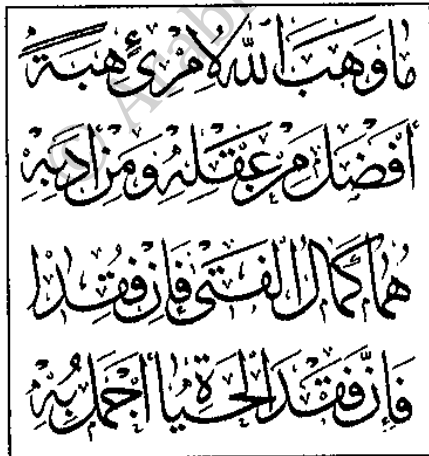 ما وهب الله لامرئ هبة
أفضل من عقله ومن أدبه
هما كمال الفتى فإن فقدا
فإن فقد الحياة أجمل به
© Arabi